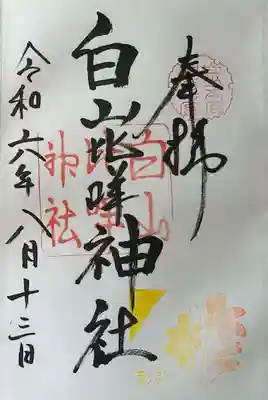 奉拝
白山比咩神社
令和六年八月十三日
白山
比咩
神社